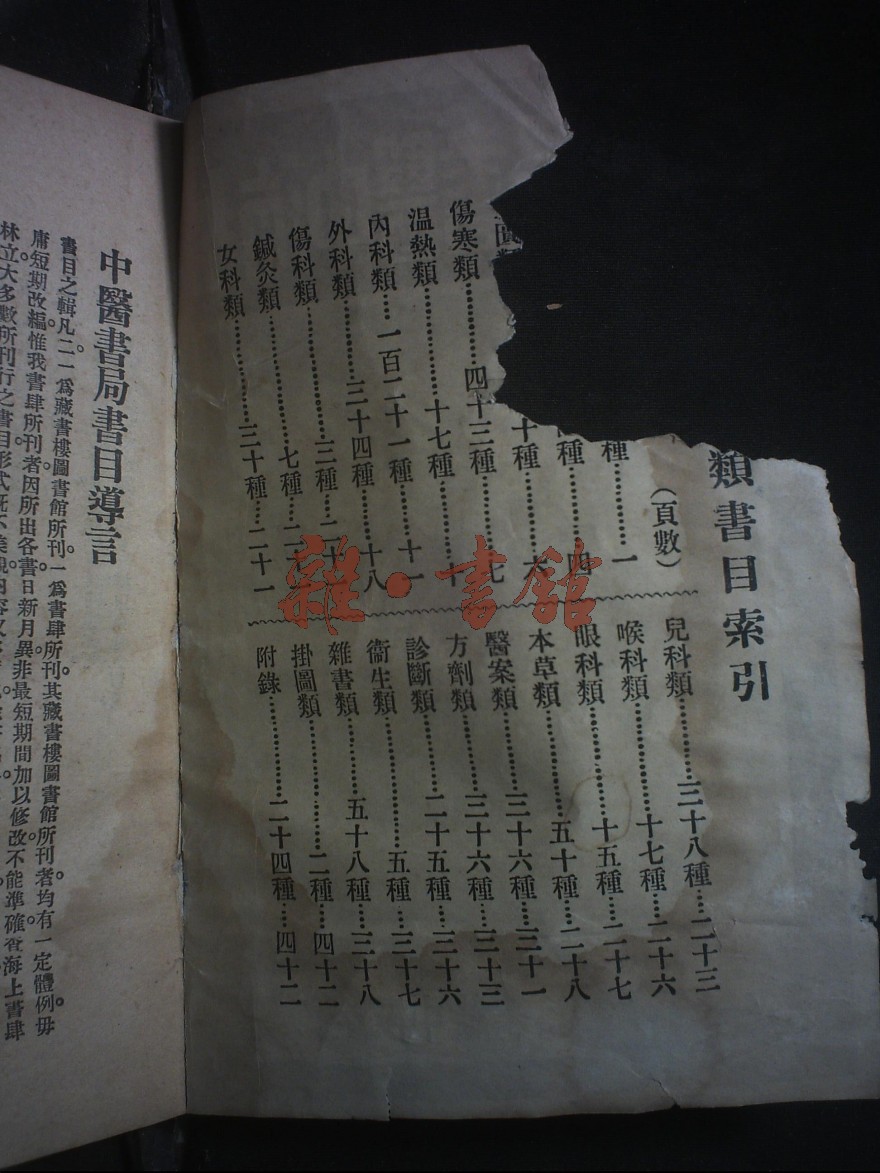 類書目索引
(頁數)
種……一
種……四
十種……六
傷寒類……四十三種……七
温熱類……十七種……十
內科類……一百二十一種……十一
外科類……三十四種……十八
傷科類……三種……二十
鍼灸類……七種……二十
女科類……三十種……二十一
兒科類……三十八種……二十三
喉科類……十七種……二十六
眼科類……十五種……二十七
本草類……五十種……二十八
醫案類……三十六種……三十一
方劑類……三十六種……三十三
診斷類……二十五種……三十六
衞生類……五種……三十七
雜書類……五十八種……三十八
掛圖類……二種……四十二
附錄……二十四種……四十二
中醫書局書目導言
書目之輯凡二一爲藏書樓圖書館所刊一爲書肆所刊其藏書樓圖書館所刊者均有一定體例毋
庸短期改編惟我書肆所刊者因所出各書日新月異非最短期間加以修改不能準確查海上書肆
林立大多數所刊行之書目形式旣不美觀內容又
雜·書舘